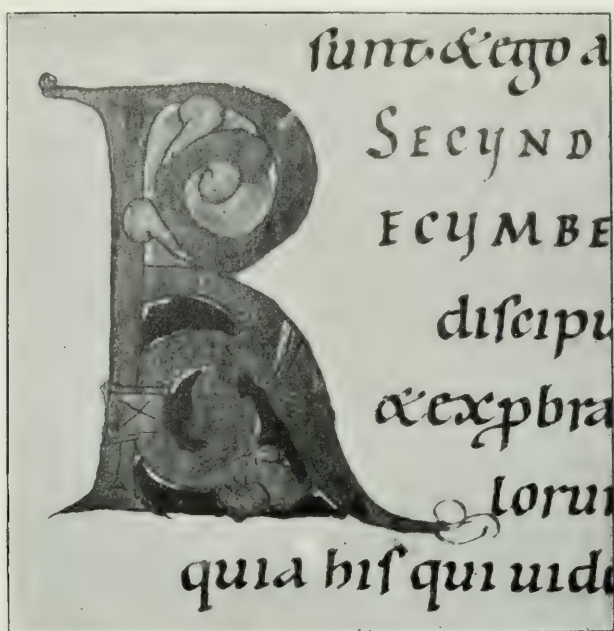 ſunt·&ego a
SECUND
R ECUMBE
diſcipu
&exp̱bra
lorum
quia hiſ qui uide